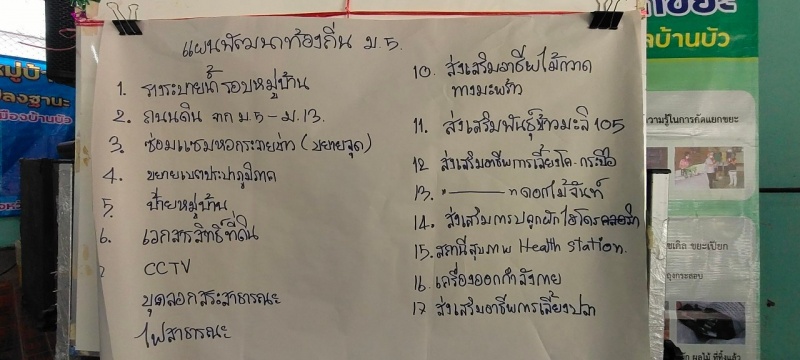 แผนพัฒนาท้องถิ่น ม.5.
1. รางระบายน้ำรอบหมู่บ้าน
2. ถนนดิน จาก ม.5 - ม.13.
3. ซ่อมแซมหอกระจายข่าว (ขยายจุด)
4. ขยายเขตประปาภูมิภาค
5. ป้ายหมู่บ้าน
6. เอกสารสิทธิ์ที่ดิน
CCTV
ขุดลอกสระสาธารณะ
ไฟสาธารณะ
10. ส่งเสริมอาชีพไม้กวาด
ทางมะพร้าว
11. ส่งเสริมพันธุ์ข้าวมะลิ 105
12 ส่งเสริมอาชีพการเลี้ยงโค-กระบือ
13. " ——— " ดอกไม้จันท์
14. ส่งเสริมการปลูกผักไฮโดร
15. สถานีสุขภาพ Health Station.
16 เครื่องออกกำลังกาย
17 ส่งเสริมอาชีพการเลี้ยงปลา
หมู่บ้
ปลงฐานะ
มืองบ้านบัว
ลบ้านบัว
ความรู้ในการคัดแยกขยะ
ขยะเปียก